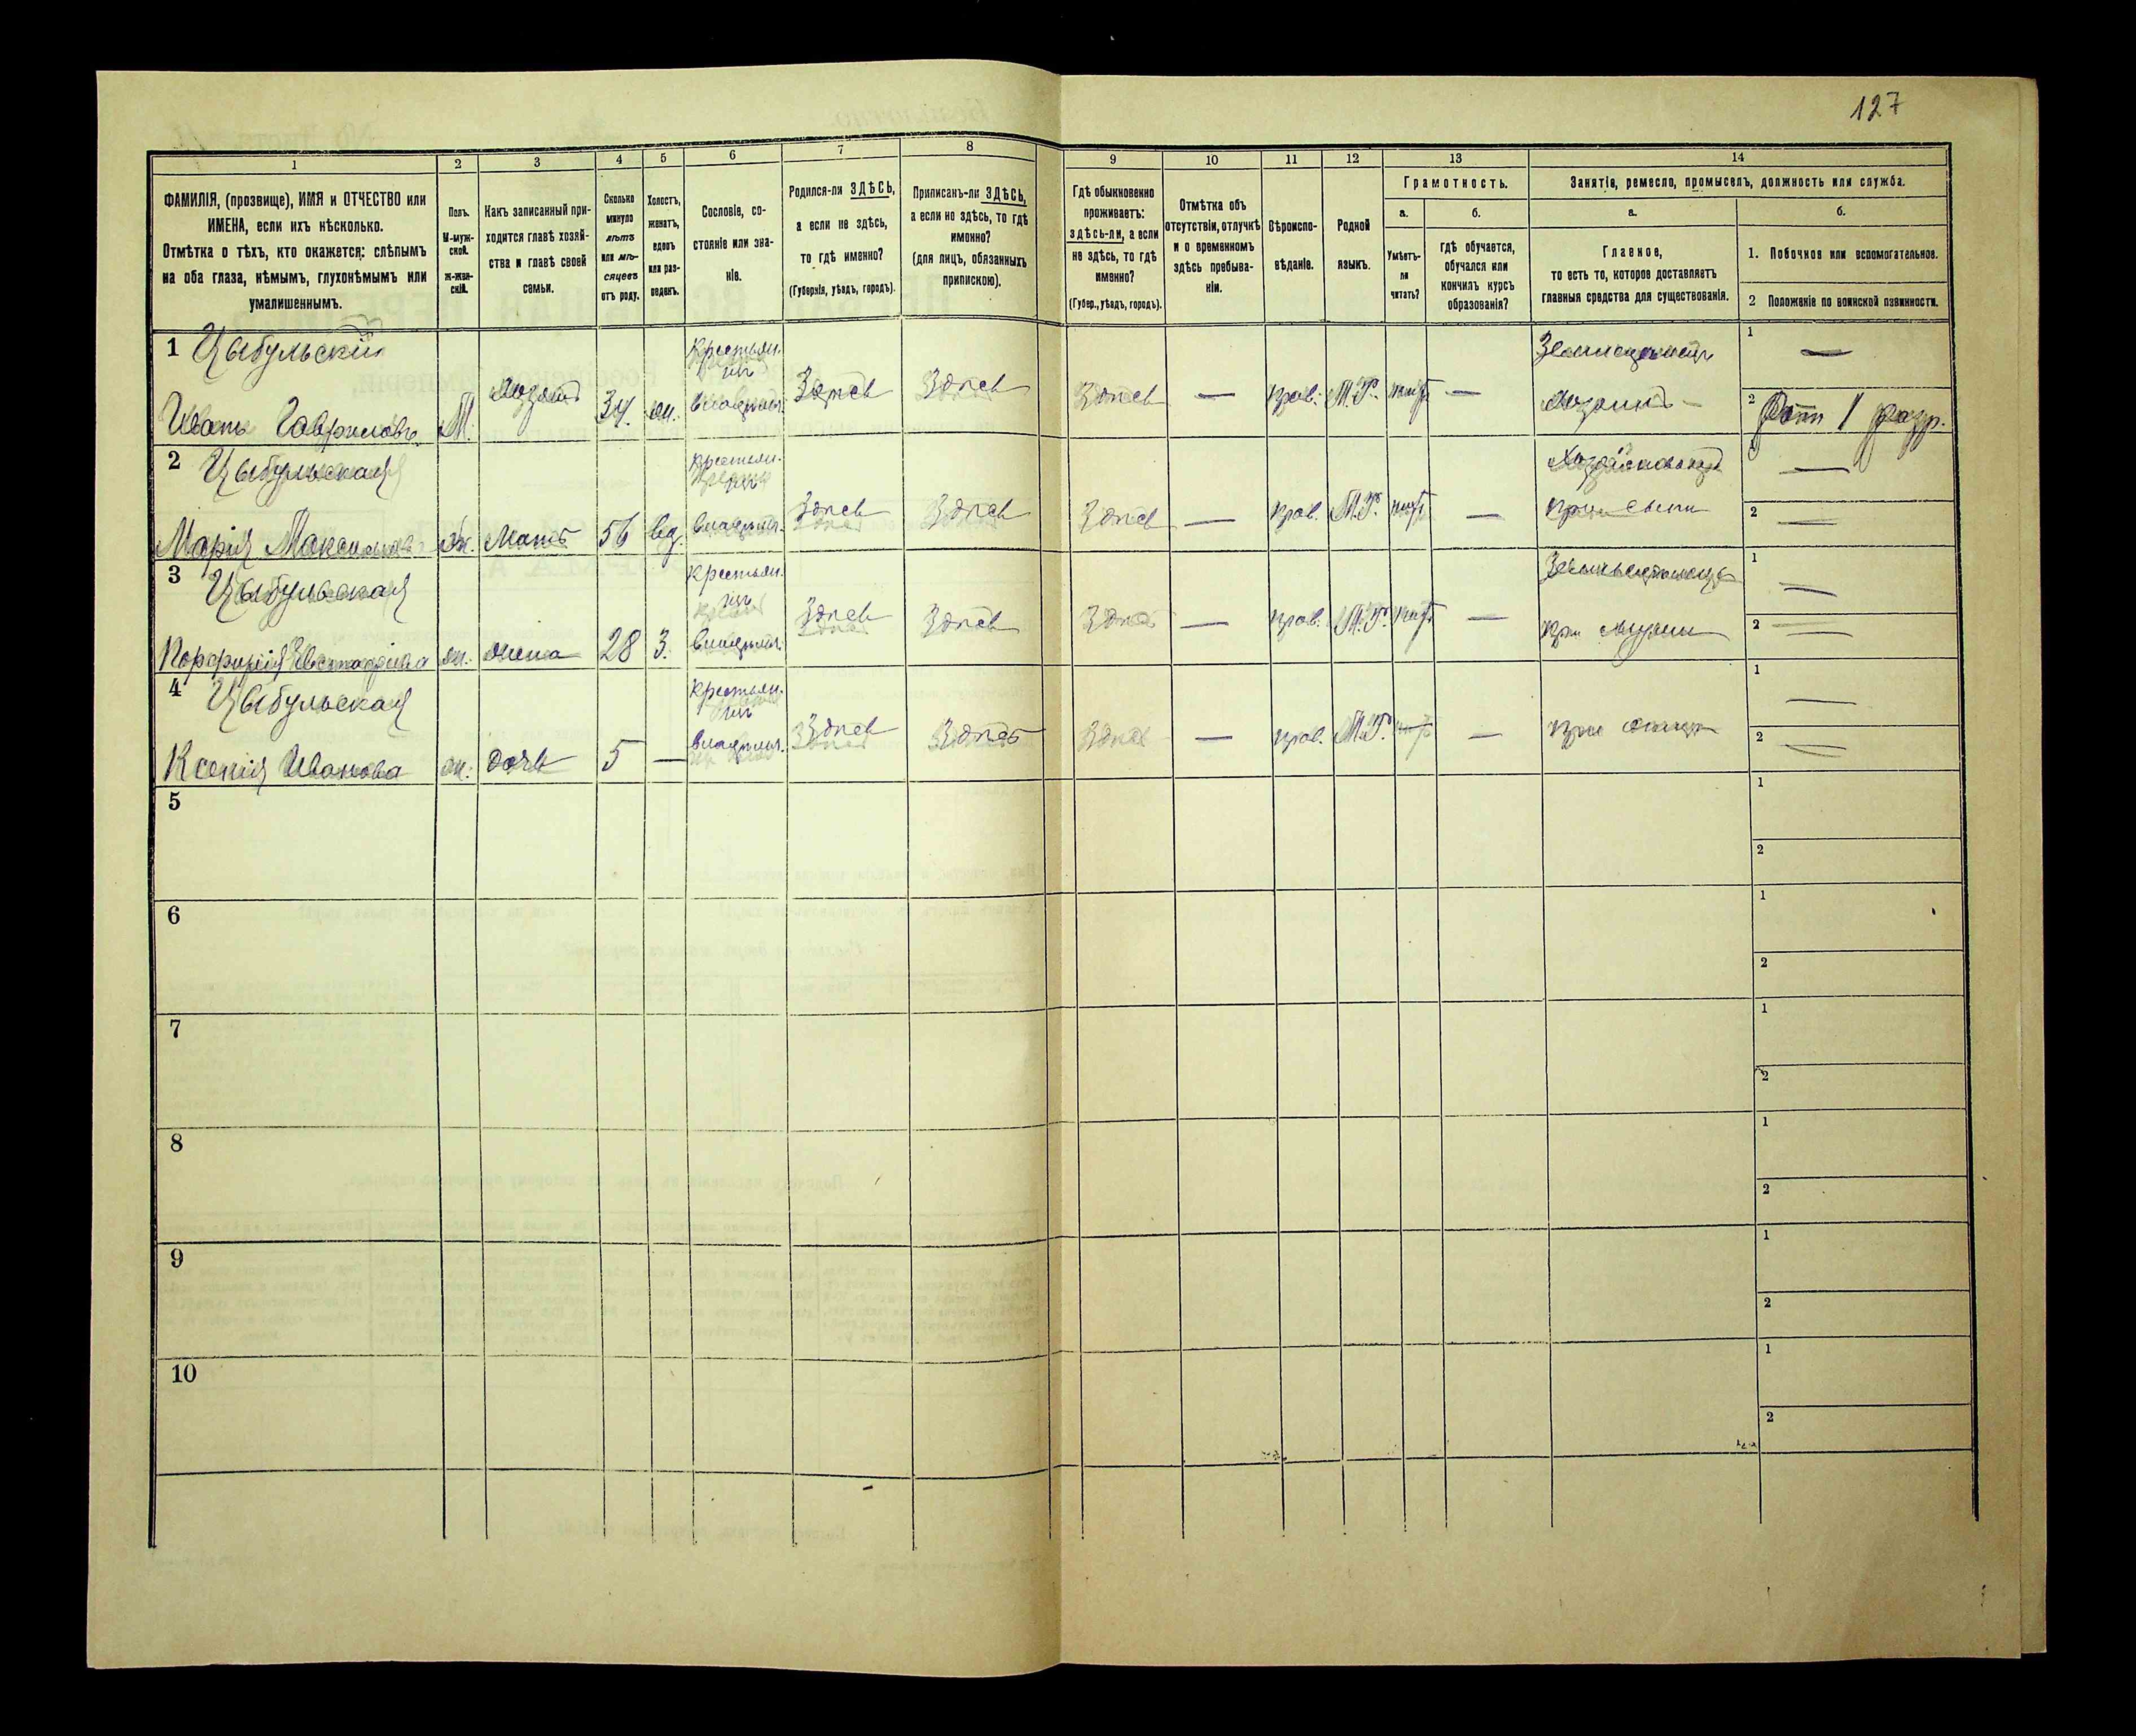 127
1
2
3
4
5
6
7
8
9
10
11
12
13
14
ФАМИЛІЯ, (прозвище), ИМЯ и ОТЧЕСТВО или
ИМЕНА, если ихъ нѣсколько.
Отмѣтка о тѣхъ, кто окажется: слѣпымъ
на оба глаза, нѣмымъ, глухонѣмымъ или
умалишеннымъ.
Полъ.
М-муж-
ской.
Ж-жен-
скій.
Какъ записанный при-
ходится главѣ хозяй-
ства и главѣ своей
семьи.
Сколько
минуло
лѣтъ
или мѣ-
сяцевъ
отъ роду.
Холостъ,
женатъ,
вдовъ
или раз-
веденъ.
Сословіе, со-
стояніе или зва-
ніе.
Родился-ли ЗДѢСЬ,
а если не здѣсь,
то гдѣ именно?
(Губернія, уѣздъ, городъ).
Приписанъ-ли ЗДѢСЬ,
а если не здѣсь, то гдѣ
именно?
(для лицъ, обязанныхъ
припискою).
Гдѣ обыкновенно
проживаетъ:
здѣсь-ли, а если
не здѣсь, то гдѣ
именно?
(Губер., уѣздъ, городъ).
Отмѣтка объ
отсутствіи, отлучкѣ
и о временномъ
здѣсь пребыва-
ніи.
Вѣроиспо-
вѣданіе.
Родной
языкъ.
Грамотность.
а.
б.
Умѣетъ-
ли
читать?
гдѣ обучается,
обучался или
кончилъ курсъ
образованія?
Занятіе, ремесло, промыселъ, должность или служба.
а.
б.
Главное,
то есть то, которое доставляетъ
главныя средства для существованія.
1. Побочное или вспомогательное.
2 Положеніе по воинской повинности.
1 Цыбульскій
Крестьян.
Иванъ Гавриловъ М. 34 ж. Здѣсь Здѣсь Здѣсь — прав. М.Р. нѣтъ —
1 —
2 Ратн 1 разр.
2 Цыбульская
Крестьян.
Марія Максимова ж. Мать 56 вд. Здѣсь Здѣсь Здѣсь — прав. М.Р. нѣтъ — при сынѣ
1 —
2 —
3 Цыбульская
Крестьян.
ж. жена 28 З. Здѣсь Здѣсь Здѣсь — прав. М.Р. нѣтъ — при мужѣ
1 —
2 —
4 Цыбульская
Крестьян.
Ксенія Иванова ж. дочь 5 — Здѣсь Здѣсь Здѣсь — прав. М.Р. нѣтъ — при отцѣ
1 —
2 —
5
1
2
6
1
2
7
1
2
8
1
2
9
1
2
10
1
2